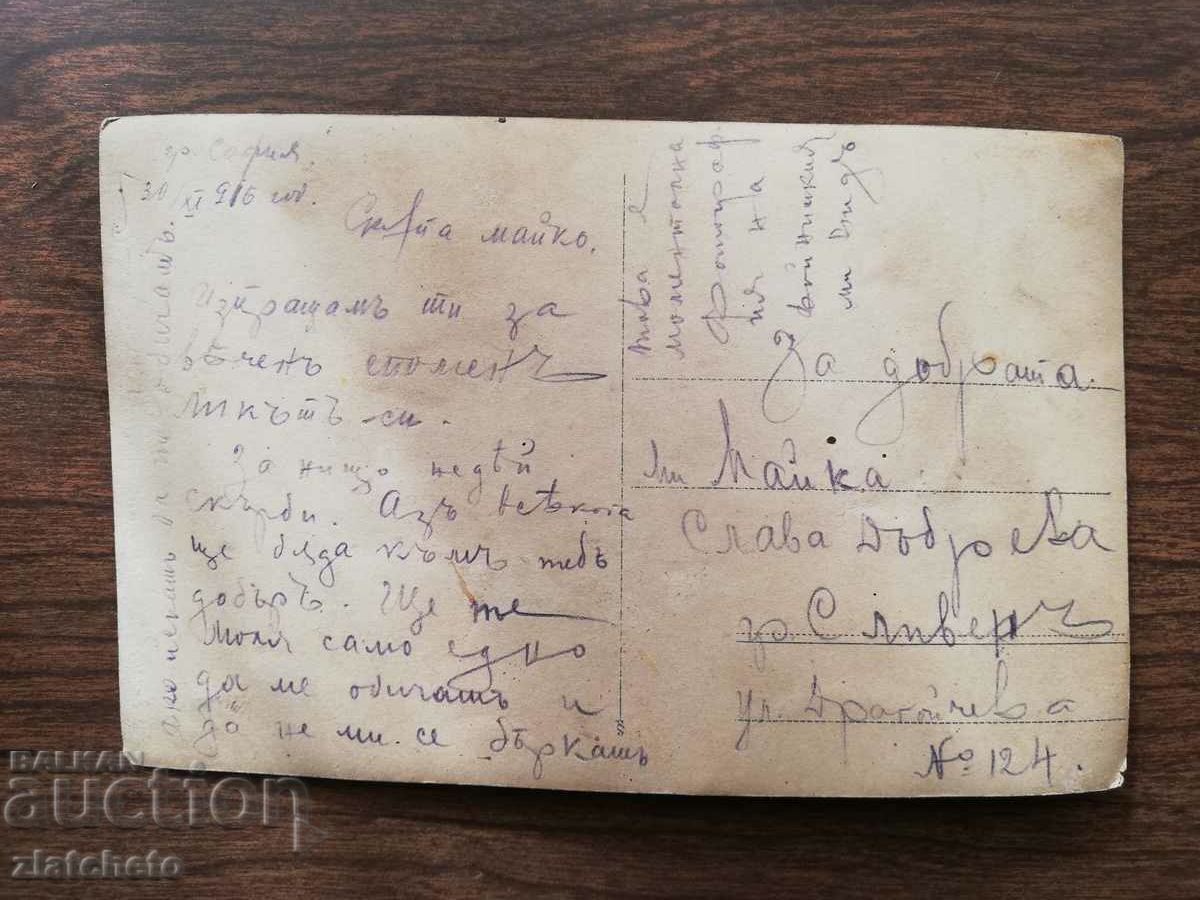 гр. София.
30/XI 916 год.
Скѫпа майко.
Изпращамъ ти за
вѣченъ споменъ
ликътъ си.
За нищо недѣй
скърби. Азъ всѣкога
ще бѫда къмъ тебъ
добъръ. Ще те
моля само едно
да ме обичашъ и
да не ми се бъркашъ
това е
моментална
фотограф
ия на
войнишкия
ми видъ
За добрата
ми Майка
Слава Добрева
гр. Сливенъ
ул. Драгойчева
№ 124.
BALKAN
auction
zlatcheto